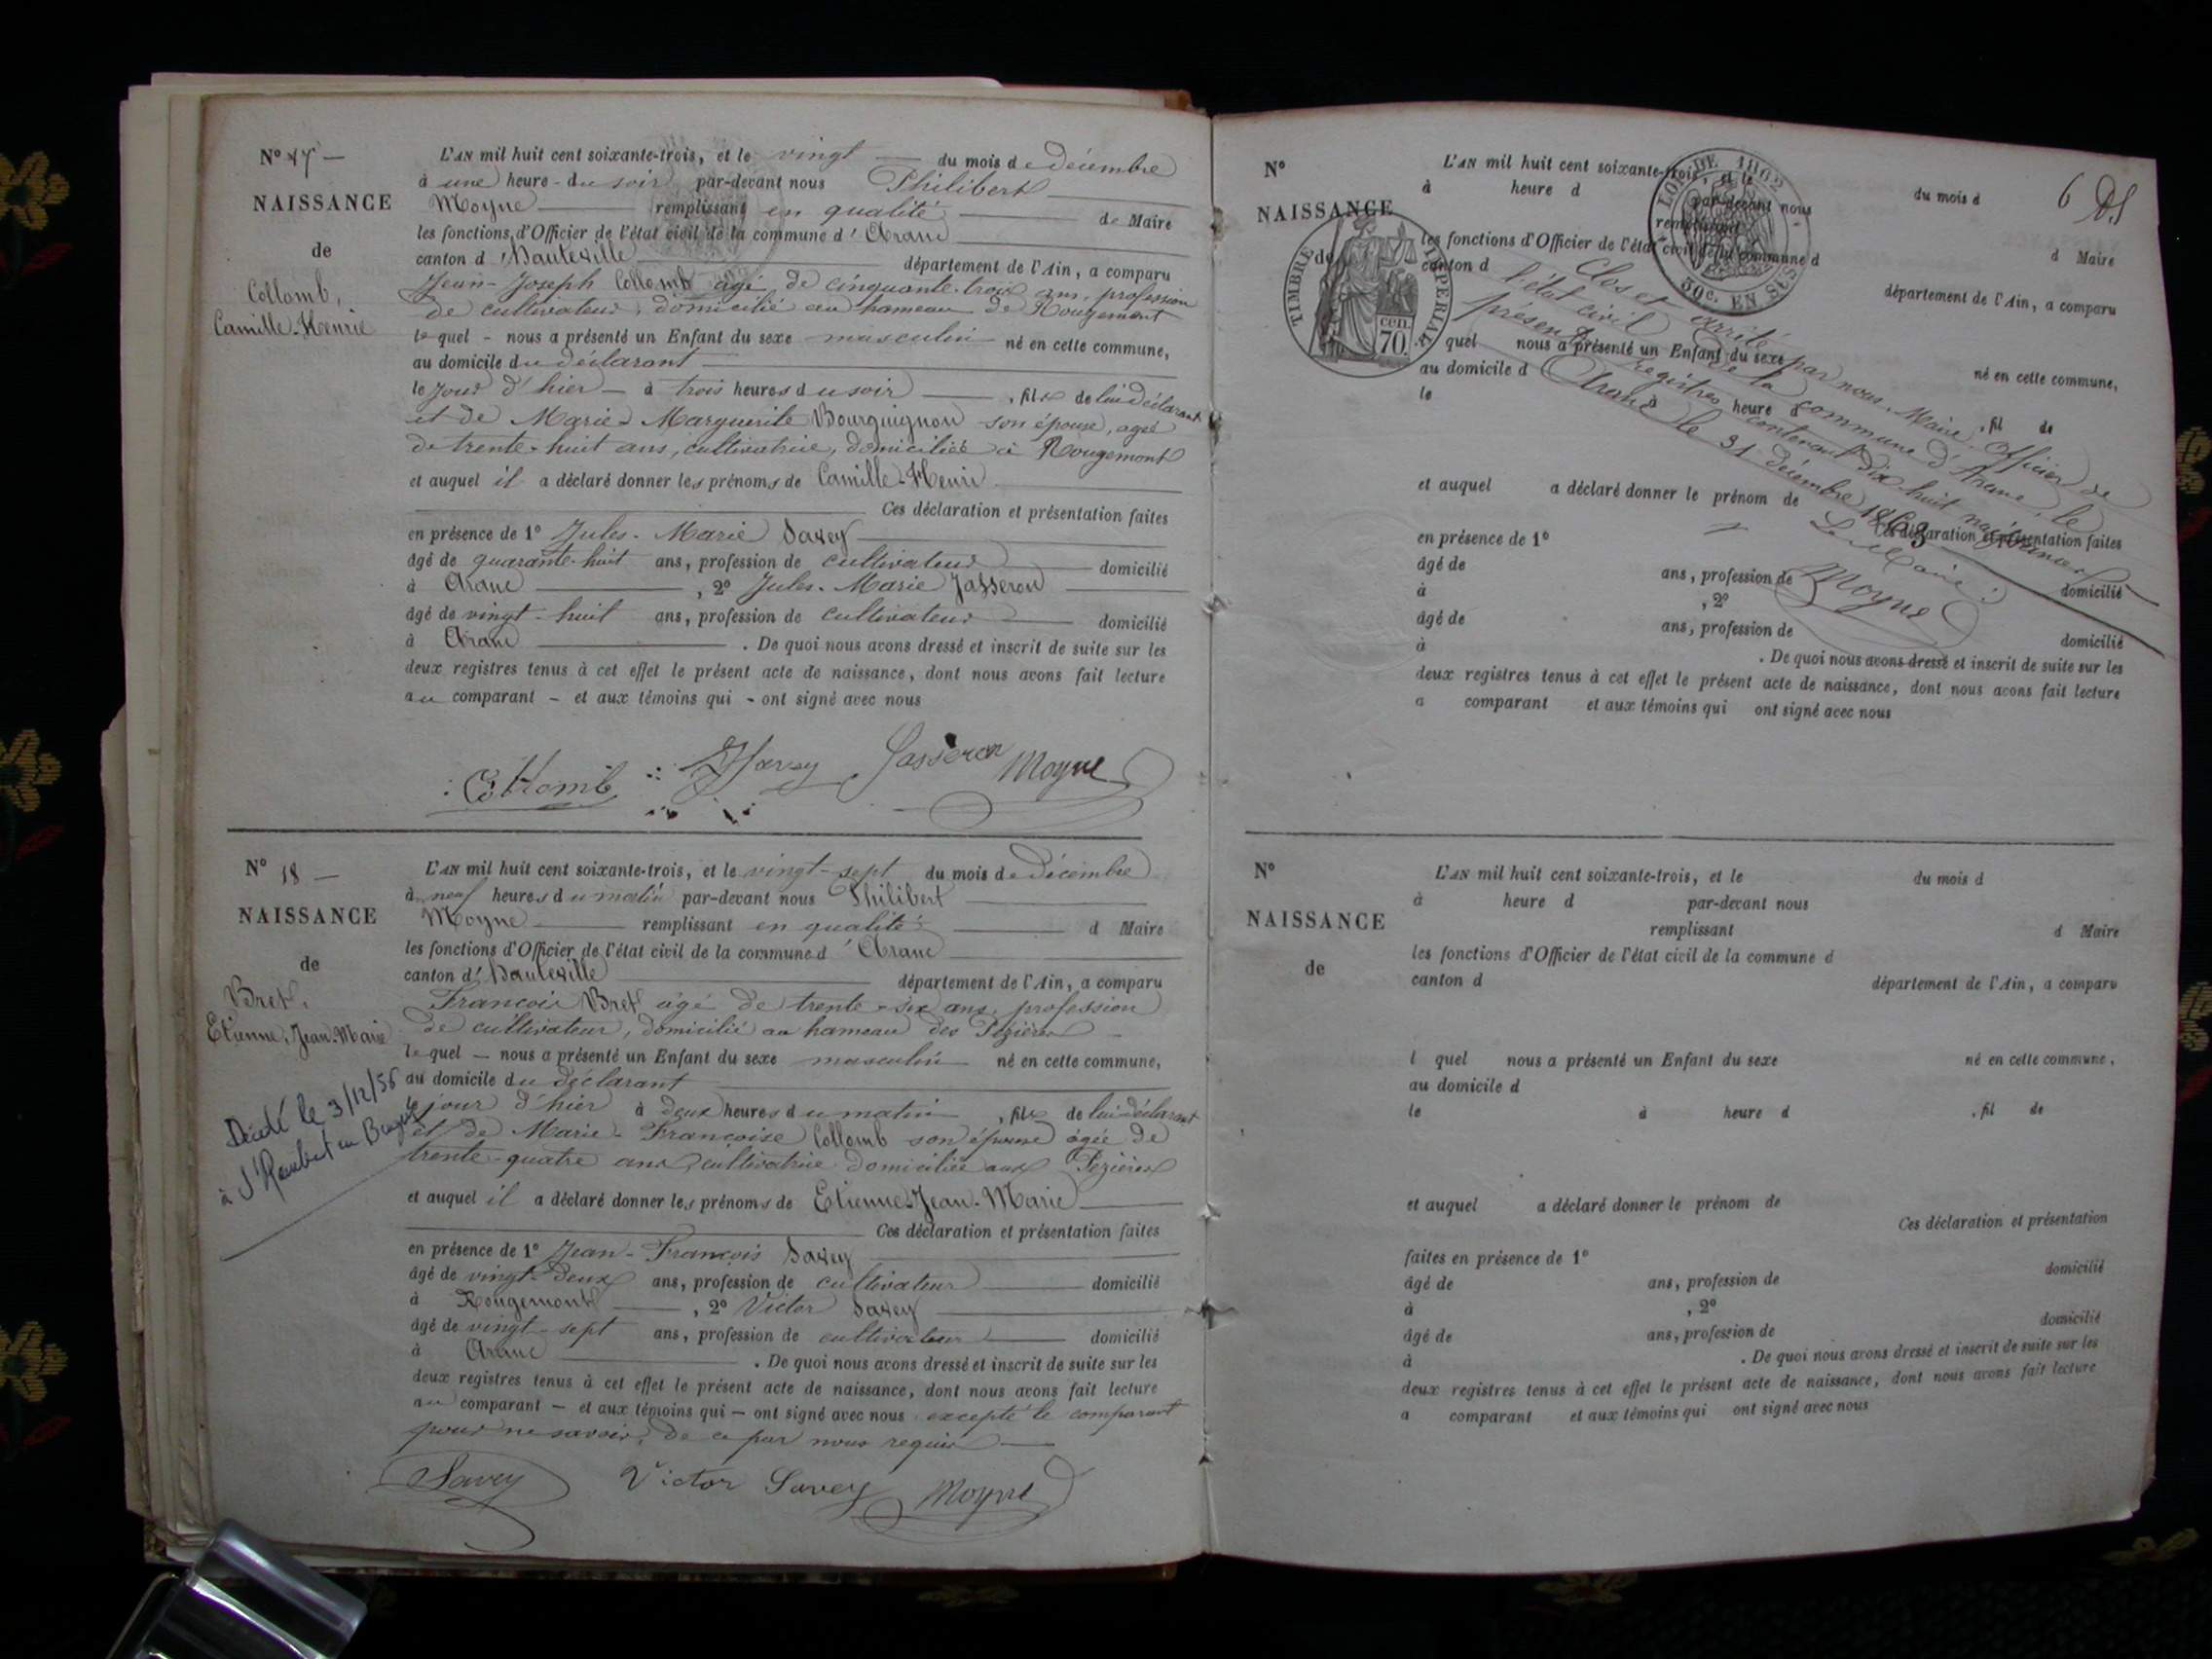 N° 17 —
NAISSANCE
de
Collomb,
Camille-Henri
L'AN mil huit cent soixante-trois, et le vingt — du mois de décembre
à une heure du soir par-devant nous Philibert
Moyne remplissant en qualité de Maire
les fonctions d'Officier de l'état civil de la commune d'Aranc
canton d'Hauteville département de l'Ain, a comparu
Jean-Joseph Collomb agé de cinquante-trois ans, profession
de cultivateur, domicilié au hameau de Rougemont
lequel — nous a présenté un Enfant du sexe masculin né en cette commune,
au domicile du déclarant
le jour d'hier — à trois heures du soir — , fils de lui déclarant
et de Marie-Marguerite Bourguignon son épouse, agée
de trente-huit ans, cultivatrice, domiciliée à Rougemont
et auquel il a déclaré donner les prénoms de Camille-Henri
Ces déclaration et présentation faites
en présence de 1° Jules-Marie Savey
âgé de quarante-huit ans, profession de cultivateur domicilié
à Aranc , 2° Jules-Marie Jasseron
âgé de vingt-huit ans, profession de cultivateur domicilié
à Aranc . De quoi nous avons dressé et inscrit de suite sur les
deux registres tenus à cet effet le présent acte de naissance, dont nous avons fait lecture
au comparant — et aux témoins qui - ont signé avec nous
Collomb Savey Jasseron Moyne
N° 18 —
NAISSANCE
de
Bret,
Etienne, Jean-Marie
Décédé le 3/12/56
à St Rambert en Bugey
L'AN mil huit cent soixante-trois, et le vingt-sept du mois de décembre
à neuf heures du matin par-devant nous Philibert
Moyne remplissant en qualité d Maire
les fonctions d'Officier de l'état civil de la commune d'Aranc
canton d'Hauteville département de l'Ain, a comparu
François Bret âgé de trente-six ans, profession
de cultivateur, domicilié au hameau des Pezières
lequel — nous a présenté un Enfant du sexe masculin né en cette commune,
au domicile du déclarant
le jour d'hier à deux heures du matin , fils de lui déclarant
et de Marie-Françoise Collomb son épouse âgée de
trente-quatre ans, cultivatrice domiciliée aux Pezières
et auquel il a déclaré donner les prénoms de Etienne-Jean-Marie
Ces déclaration et présentation faites
en présence de 1° Jean-François Savey
âgé de vingt-deux ans, profession de cultivateur domicilié
à Rougemont , 2° Victor Savey
âgé de vingt-sept ans, profession de cultivateur domicilié
à Aranc . De quoi nous avons dressé et inscrit de suite sur les
deux registres tenus à cet effet le présent acte de naissance, dont nous avons fait lecture
au comparant — et aux témoins qui — ont signé avec nous excepté le comparant
pour ne savoir, de ce par nous requis
Savey Victor Savey Moyne
6
N°
NAISSANCE
de
TIMBRE IMPERIAL
70 cen.
LOI DE 1862
50c. EN SUS
L'AN mil huit cent soixante-trois, et le du mois d
à heure d par-devant nous
remplissant d Maire
les fonctions d'Officier de l'état civil de la commune d
canton d département de l'Ain, a comparu
Clos et arrêté par nous, Maire, Officier de
l'état civil de la commune d'Aranc, le
présent registre contenant dix-huit naissances
Aranc le 31 décembre 1863
Le Maire,
Moyne
l quel nous a présenté un Enfant du sexe né en cette commune,
au domicile d
le à heure d , fil de
et auquel a déclaré donner le prénom de
Ces déclaration et présentation faites
en présence de 1°
âgé de ans, profession de domicilié
à , 2°
âgé de ans, profession de domicilié
à . De quoi nous avons dressé et inscrit de suite sur les
deux registres tenus à cet effet le présent acte de naissance, dont nous avons fait lecture
a comparant et aux témoins qui ont signé avec nous
N°
NAISSANCE
de
L'AN mil huit cent soixante-trois, et le du mois d
à heure d par-devant nous
remplissant d Maire
les fonctions d'Officier de l'état civil de la commune d
canton d département de l'Ain, a comparu
l quel nous a présenté un Enfant du sexe né en cette commune,
au domicile d
le à heure d , fil de
et auquel a déclaré donner le prénom de
Ces déclaration et présentation
faites en présence de 1°
âgé de ans, profession de domicilié
à , 2°
âgé de ans, profession de domicilié
à . De quoi nous avons dressé et inscrit de suite sur les
deux registres tenus à cet effet le présent acte de naissance, dont nous avons fait lecture
a comparant et aux témoins qui ont signé avec nous